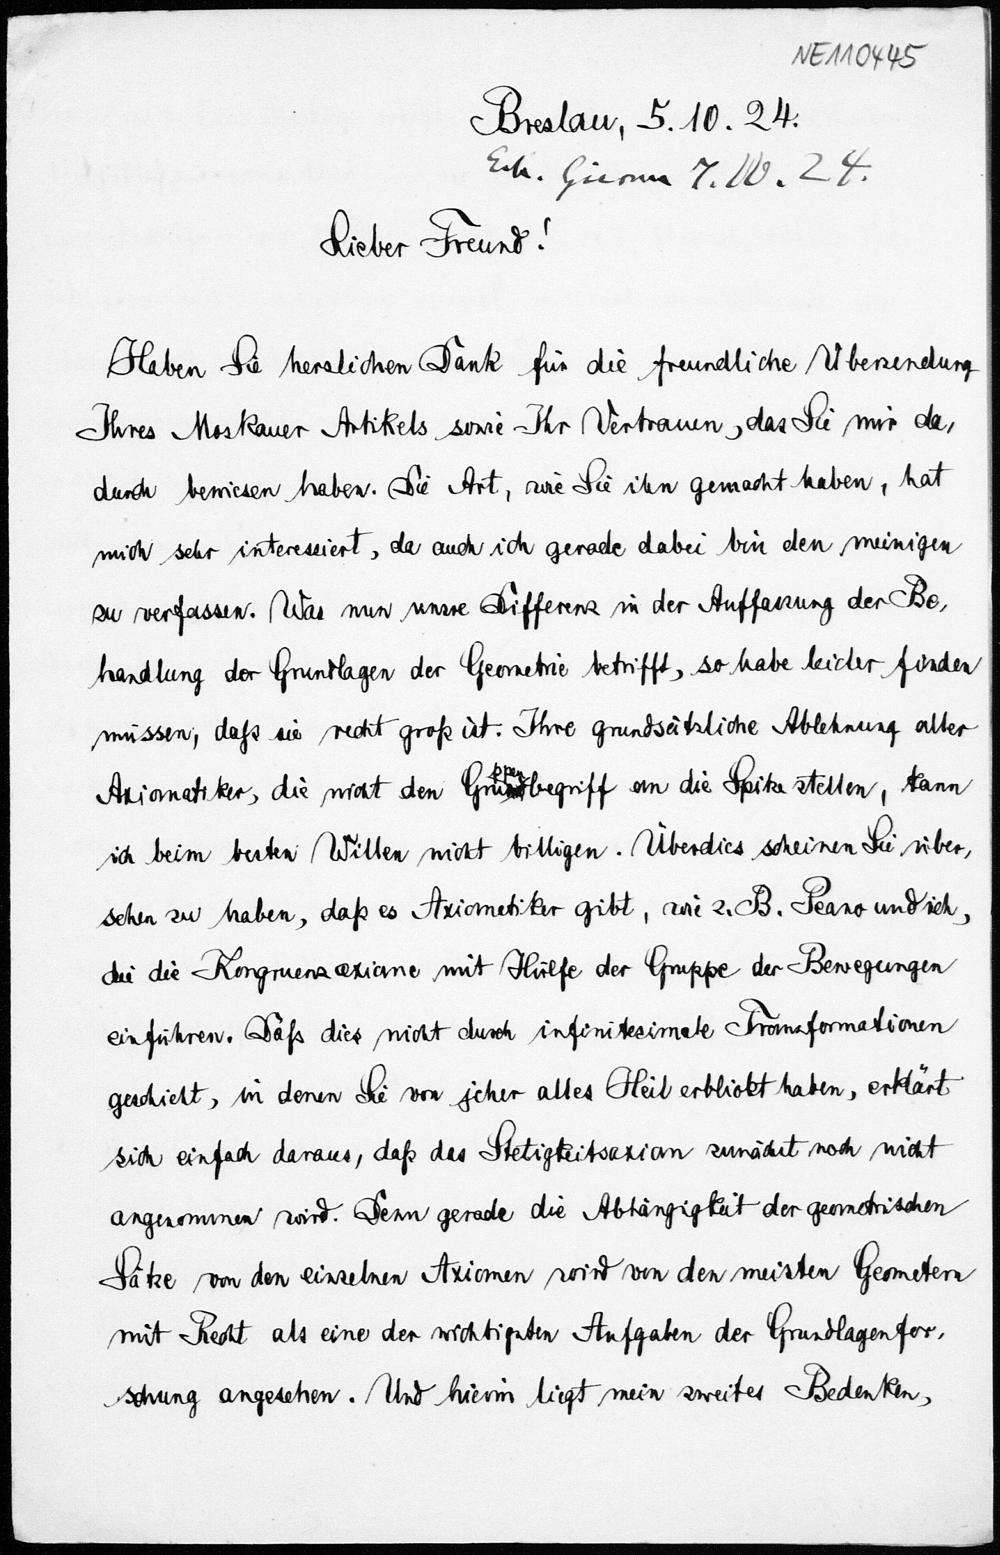 NE110445
Breslau, 5.10.24.
7.10.24.
Lieber Freund!
Haben Sie herzlichen Dank für die freundliche Übersendung
Ihres Moskauer Artikels sowie Ihr Vertrauen, das Sie mir da,
durch bewiesen haben. Die Art, wie Sie ihn gemacht haben, hat
mich sehr interessiert, da auch ich gerade dabei bin den meinigen
zu verfassen. Was nun unsre Differenz in der Auffassung der Be,
handlung der Grundlagen der Geometrie betrifft, so habe leider finden
müssen, daß sie recht groß ist. Ihre grundsätzliche Ablehnung aller
Axiomatiker, die nicht den Gruppenbegriff an die Spitze stellen, kann
ich beim besten Willen nicht billigen. Überdies scheinen Sie über,
sehen zu haben, daß es Axiomatiker gibt, wie z. B. Peano und ich,
die die Kongruenzaxiome mit Hülfe der Gruppe der Bewegungen
einführen. Daß dies nicht durch infinitesimale Transformationen
geschieht, in denen Sie von jeher alles Heil erblickt haben, erklärt
sich einfach daraus, daß das Stetigkeitsaxiom zunächst noch nicht
angenommen wird. Denn gerade die Abhängigkeit der geometrischen
Sätze von den einzelnen Axiomen wird von den meisten Geometern
mit Recht als eine der wichtigsten Aufgaben der Grundlagenfor,
schung angesehen. Und hierin liegt mein zweites Bedenken,